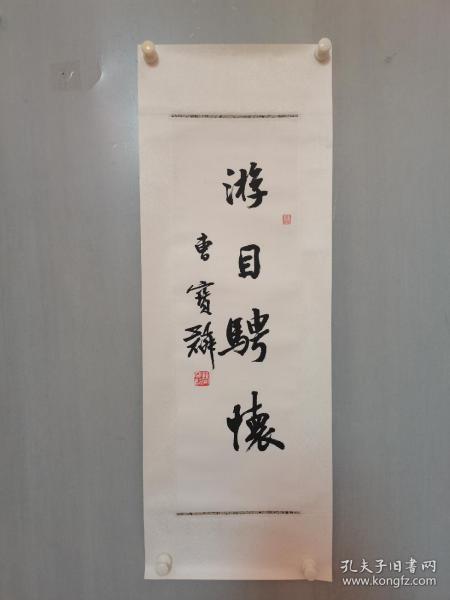 游目騁懷
曹寶麟
孔夫子旧书网
www.kongfz.com